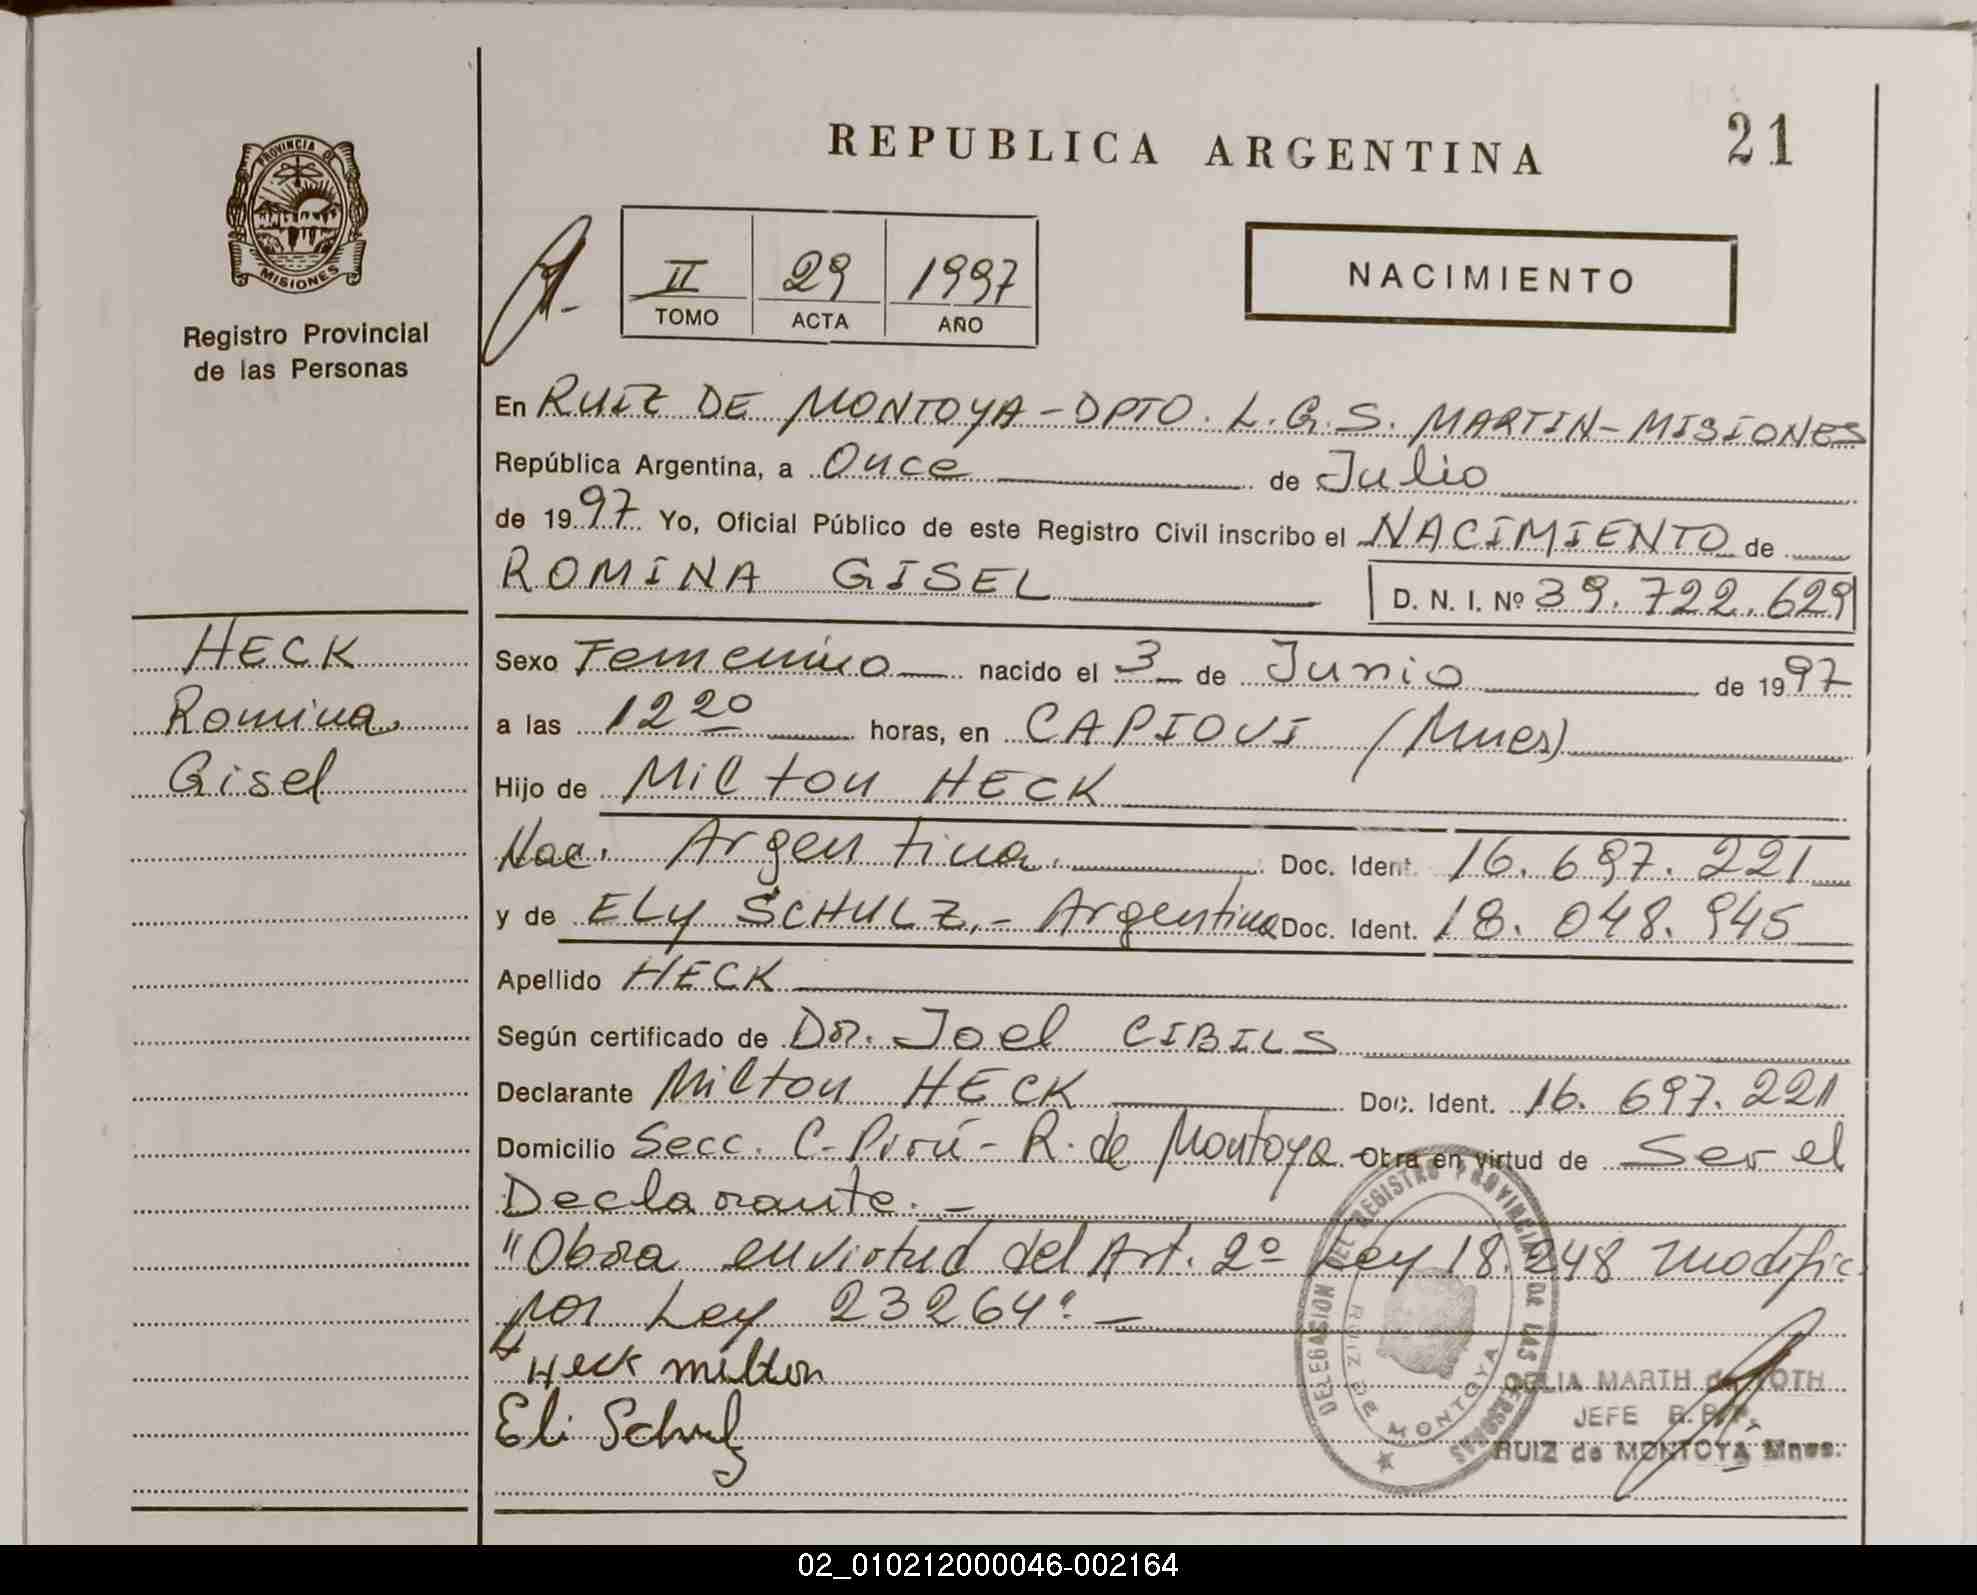 REPUBLICA ARGENTINA
21
PROVINCIA DE
MISIONES
Registro Provincial
de las Personas
II 29 1997
TOMO ACTA AÑO
NACIMIENTO
En RUIZ DE MONTOYA-DPTO. L.G.S. MARTIN-MISIONES
República Argentina, a Once de Julio
de 1997 Yo, Oficial Público de este Registro Civil inscribo el NACIMIENTO de
ROMINA GISEL D. N. I. Nº 39.722.629
HECK
Romina
Gisel
Sexo Femenino nacido el 3 de Junio de 1997
a las 12 20 horas, en CAPIOVI (Mnes)
Hijo de Milton HECK
Nac. Argentina. Doc. Ident. 16.697.221
y de ELY SCHULZ.- Argentina Doc. Ident. 18.048.945
Apellido HECK
Según certificado de Dr. Joel CIBILS
Declarante Milton HECK Doc. Ident. 16.697.221
Domicilio Secc. C. - R. de Montoya Obra en virtud de Ser el
Declarante.-
"Obra en virtud del Art. 2º Ley 18.248 modific
por Ley 23264".-
Heck milton
Eli Schulz
DELEGASION DEL REGISTRO PROVINCIAL DE LAS PERSONAS
RUIZ DE MONTOYA
CELIA MARTH de ROTH
JEFE R.P.P.
RUIZ de MONTOYA Mnes.
02_010212000046-002164